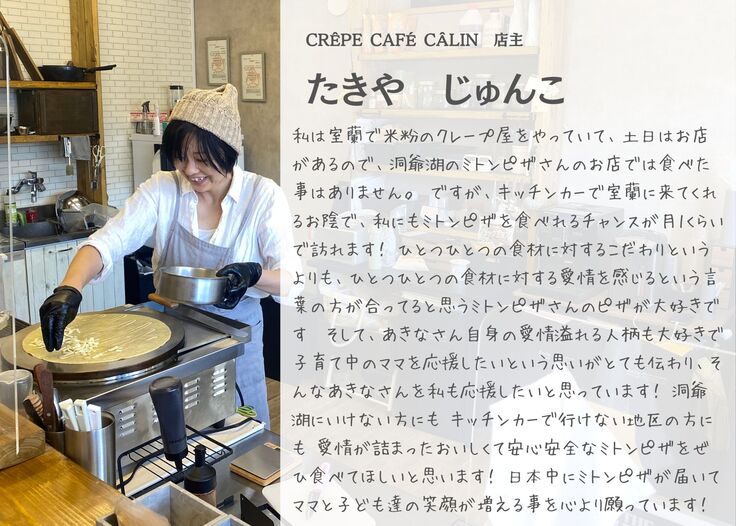 CRÊPE CAFÉ CÂLIN 店主
たきや じゅんこ
私は室蘭で米粉のクレープ屋をやっていて、土日はお店
があるので、洞爺湖のミトンピザさんのお店では食べた
事はありません。 ですが、キッチンカーで室蘭に来てくれ
るお陰で、私にもミトンピザを食べれるチャンスが月1くらい
で訪れます! ひとつひとつの食材に対するこだわりという
よりも、ひとつひとつの食材に対する愛情を感じるという言
葉の方が合ってると思うミトンピザさんのピザが大好きで
す そして、あきなさん自身の愛情溢れる人柄も大好きで
子育て中のママを応援したいという思いがとても伝わり、そ
んなあきなさんを私も応援したいと思っています! 洞爺
湖にいけない方にも キッチンカーで行けない地区の方に
も 愛情が詰まったおいしくて安心安全なミトンピザをぜ
ひ食べてほしいと思います! 日本中にミトンピザが届いて
ママと子ども達の笑顔が増える事を心より願っています!